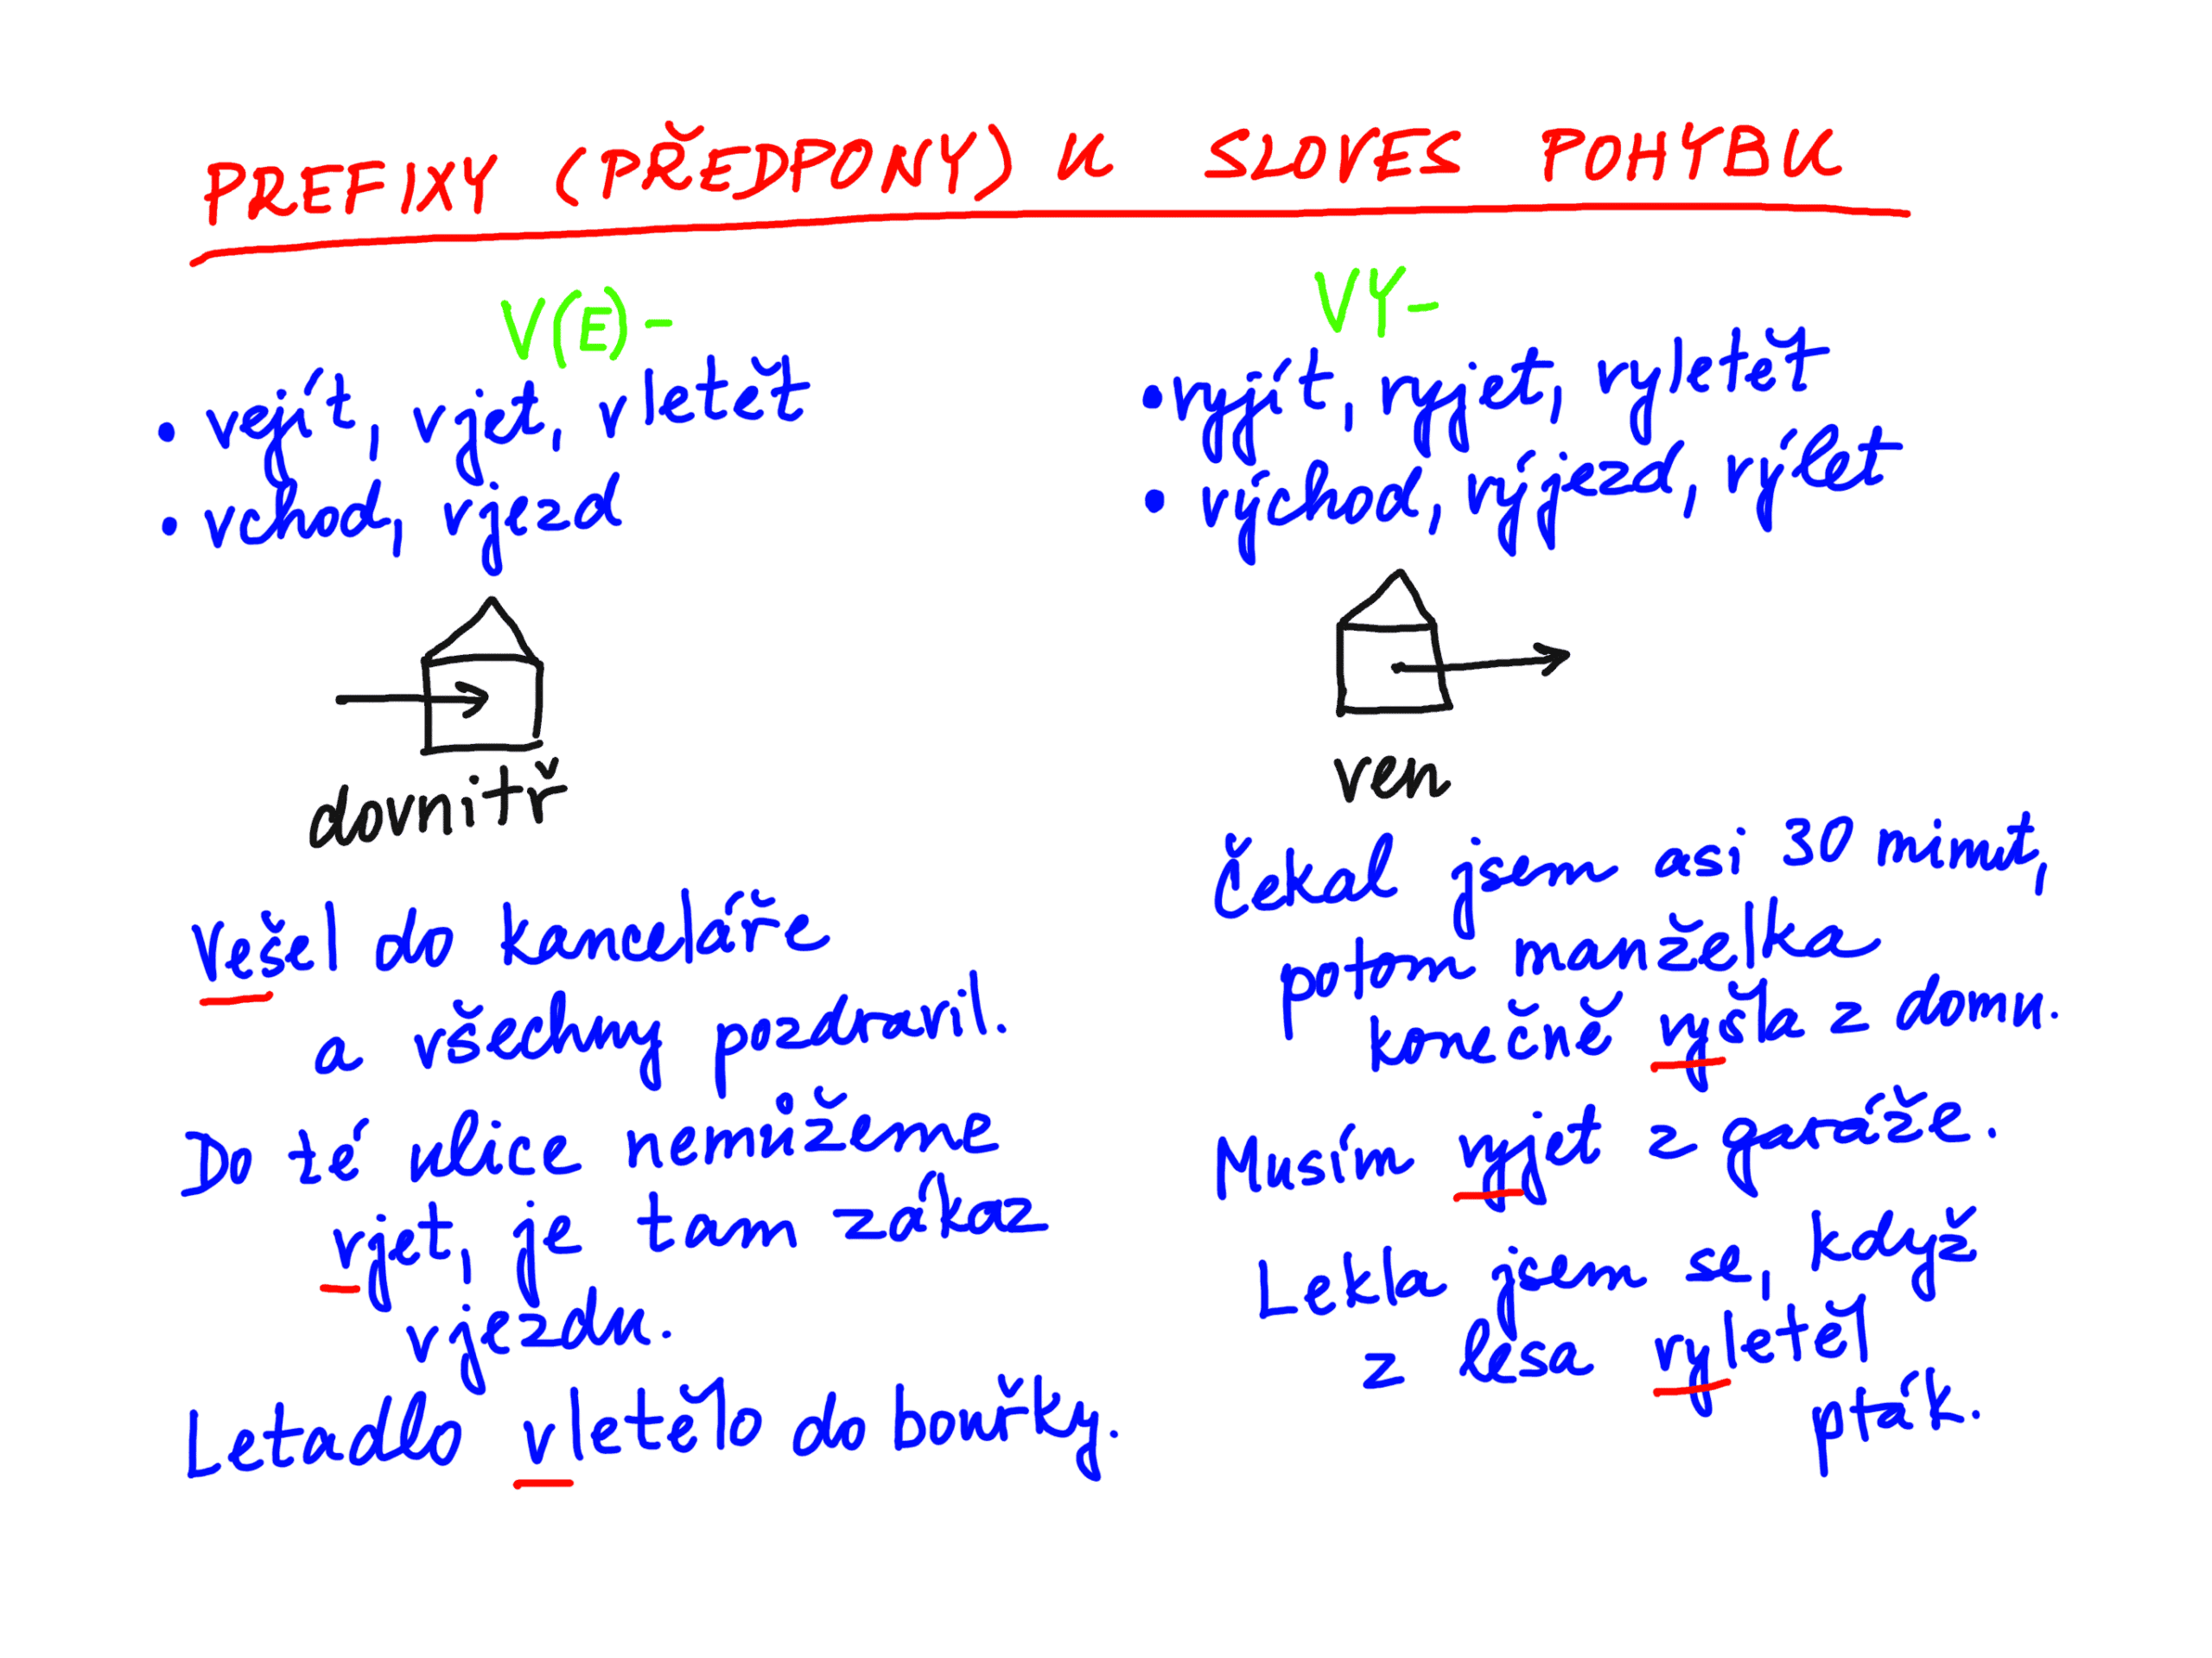 PREFIXY (PŘEDPONY) U SLOVES POHYBU
V(E)-
• vejít, vjet, vletět
• vchod, vjezd
dovnitř
Vešel do kanceláře
a všechny pozdravil.
Do té ulice nemůžeme
vjet, je tam zákaz
vjezdu.
Letadlo vletělo do bouřky.
VY-
• vyjít, vyjet, vyletět
• východ, výjezd, výlet
ven
Čekal jsem asi 30 minut,
potom manželka
konečně vyšla z domu.
Musím vyjet z garáže.
Lekla jsem se, když
z lesa vyletěl
pták.